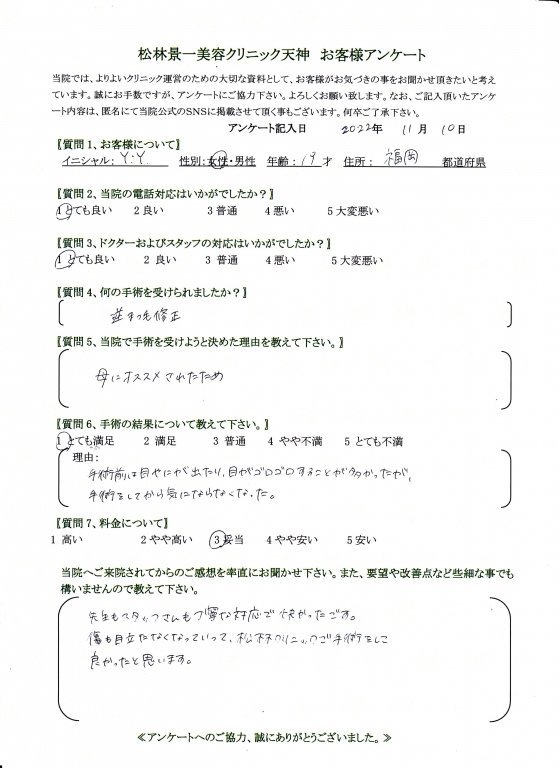 松林景一美容クリニック天神　お客様アンケート
当院では、よりよいクリニック運営のための大切な資料として、お客様がお気づきの事をお聞かせ頂きたいと考え
ています。誠にお手数ですが、アンケートにご協力下さい。よろしくお願い致します。なお、ご記入頂いたアンケ
ート内容は、匿名にて当院公式のSNSに掲載させて頂く事もございます。何卒ご了承下さい。
アンケート記入日　2022年　11月　10日
〖質問１、お客様について〗
イニシャル：Y.Y.　性別：女性・男性　年齢：19才　住所：福岡　都道府県
〖質問２、当院の電話対応はいかがでしたか？〗
1 とても良い　2 良い　3 普通　4 悪い　5 大変悪い
〖質問３、ドクターおよびスタッフの対応はいかがでしたか？〗
1 とても良い　2 良い　3 普通　4 悪い　5 大変悪い
〖質問４、何の手術を受けられましたか？〗
逆まつ毛修正
〖質問５、当院で手術を受けようと決めた理由を教えて下さい。〗
母にオススメされたため
〖質問６、手術の結果について教えて下さい。〗
1 とても満足　2 満足　3 普通　4 やや不満　5 とても不満
理由：
手術前は目やにが出たり、目がゴロゴロすることが多かったが、
手術をしてから気にならなくなった。
〖質問７、料金について〗
1 高い　2 やや高い　3 妥当　4 やや安い　5 安い
当院へご来院されてからのご感想を率直にお聞かせ下さい。また、要望や改善点など些細な事でも
構いませんので教えて下さい。
先生もスタッフさんも丁寧な対応で良かったです。
傷も目立たなくなっていって、松林クリニックで手術をして
良かったと思います。
≪アンケートへのご協力、誠にありがとうございました。≫